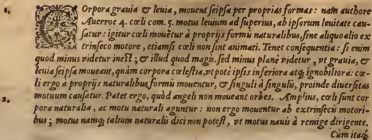 1. Corpora grauia & leuia, mouent seipsa per proprias formas: nam authore
Auerroe 4. cœli com. 5. motus leuium ad superius, ab ipsorum leuitate cau-
satur: igitur cœli mouẽtur à proprijs formis naturalibus, sine aliquo alio ex
trinseco motore, etiamsi cœli non sint animati. Tenet consequentia: si enim
quod minus videtur inest, & illud quod magis. sed minus planè videtur, vt grauia, &
leuia seipsa moueant, quàm corpora cœlestia, vt potè ipsis inferiora atq; ignobiliora: cœ-
li ergo a proprijs naturalibus formis mouentur, & singuli à singulis, proinde diuersitas
motuum causatur. Patet ergo, quòd angeli non moueant orbes. Amplius, cœli sint cor
2. pora naturalia, ac motu naturali aguntur: non ergo mouentur ab extrinseco motori-
bus; motus namq; talium naturalis dici non potest, vt motus nauis à remige dirigente,
Cum itaq;